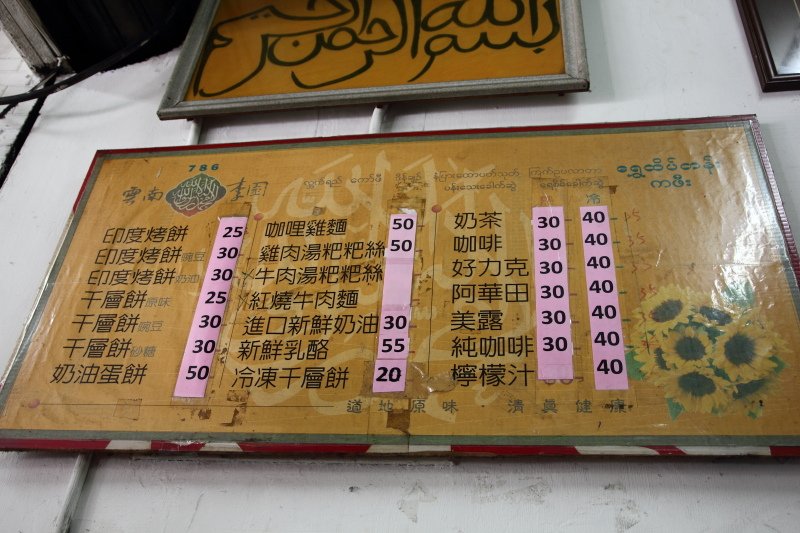 بسم الله الرحمن الرحيم
786
雲南 書園
ရွှေထိပ်တန်း
ကဖီး
冷
印度烤餅 25
印度烤餅 豌豆 30
印度烤餅 奶油 30
千層餅 原味 25
千層餅 豌豆 30
千層餅 砂糖 30
奶油蛋餅 50
咖哩雞麵 50
雞肉湯粑粑絲 50
牛肉湯粑粑絲
紅燒牛肉麵
進口新鮮奶油 30
新鮮乳酪 55
冷凍千層餅 20
奶茶 30 40
咖啡 30 40
好力克 30 40
阿華田 30 40
美露 30 40
純咖啡 30 40
檸檬汁 40
道地原味 · 清真健康